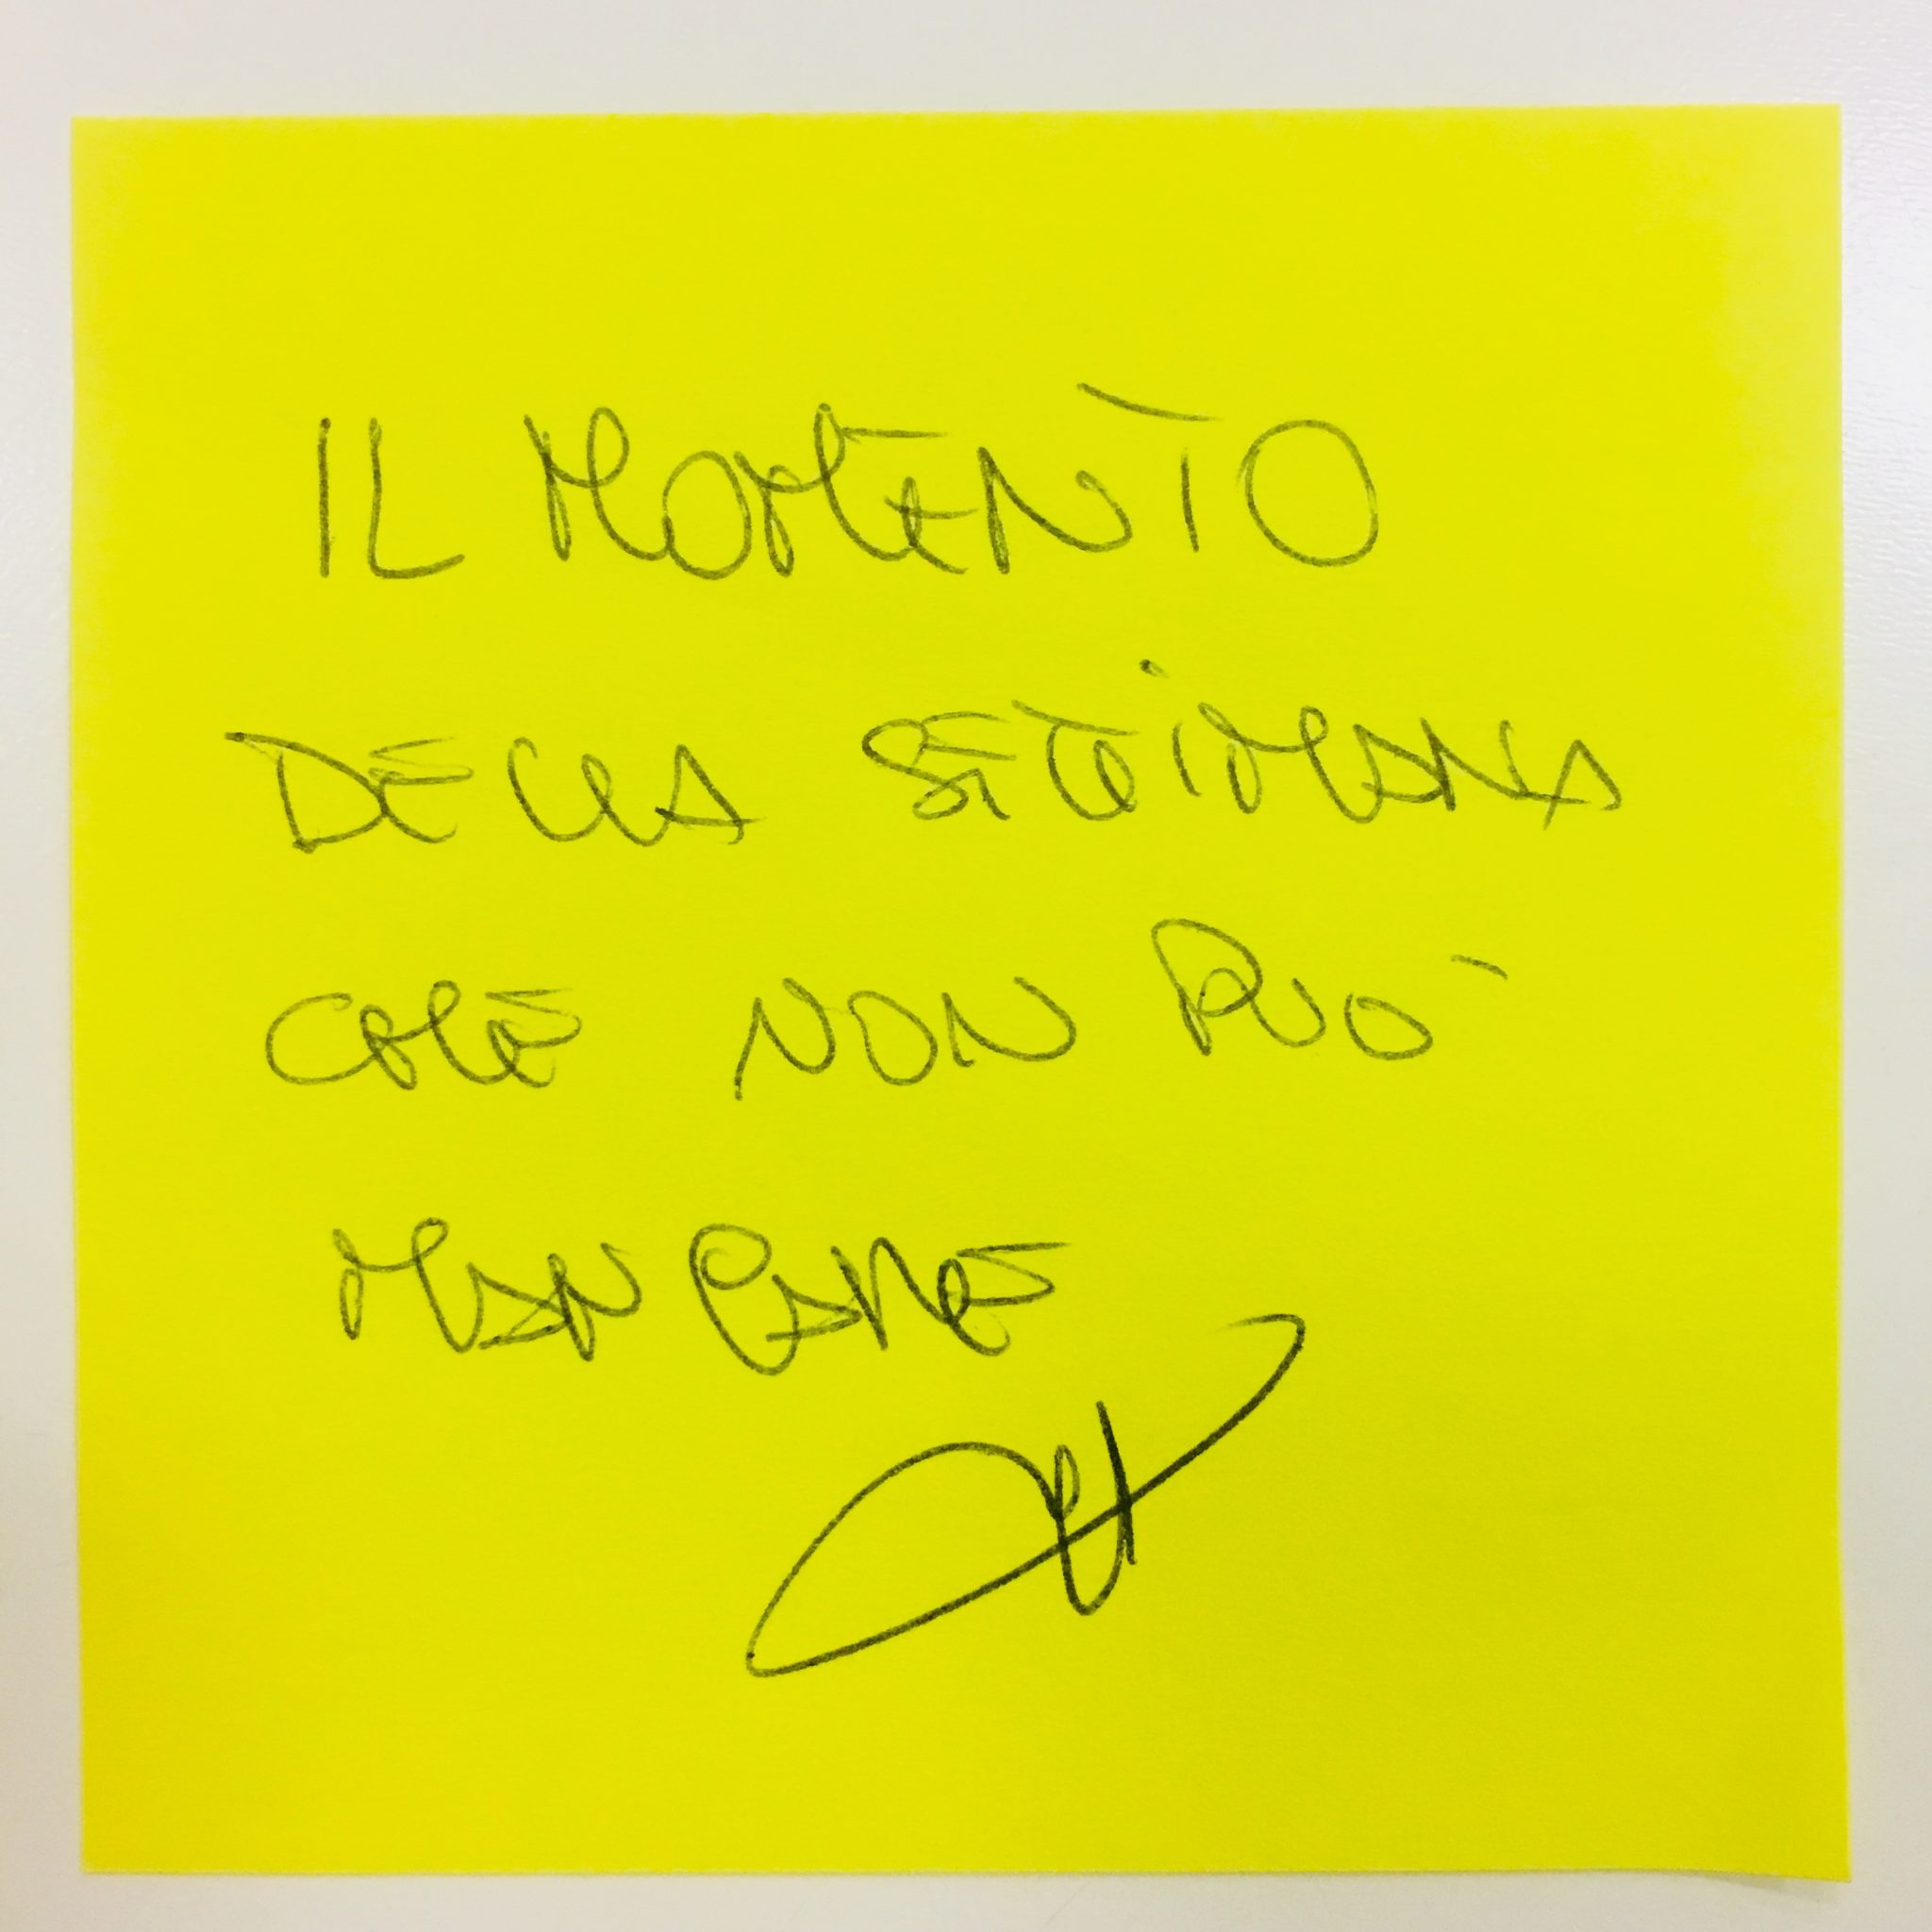 IL MOMENTO
DELLA SETTIMANA
CHE NON PUO'
MANCARE